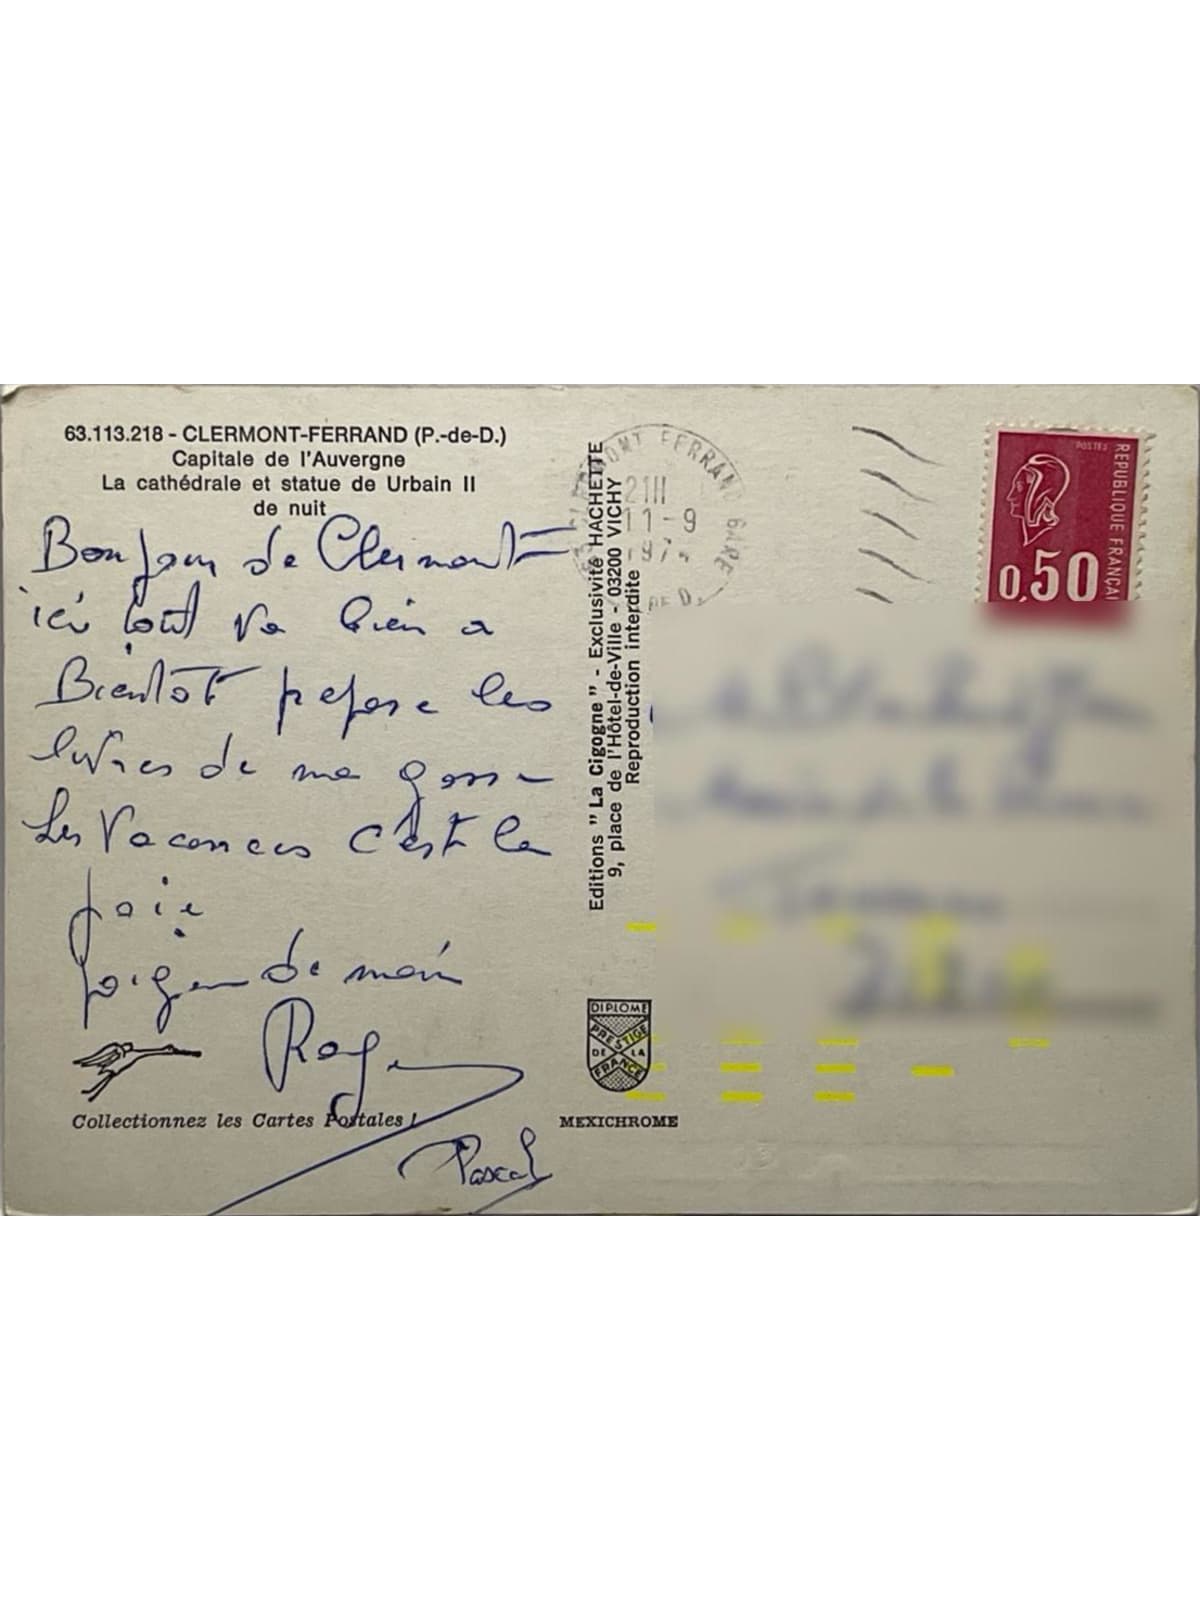 63.113.218 - CLERMONT-FERRAND (P.-de-D.)
Capitale de l'Auvergne
La cathédrale et statue de Urbain II
de nuit
Bonjour de Clermont
ici tout va bien a
Bientôt prepare les
livres de ma gosse
Les Vacances c'est la
joie
poignee de main
Roger
Pascal
Collectionnez les Cartes Postales !
Editions "La Cigogne" - Exclusivité HACHETTE
9, place de l'Hôtel-de-Ville - 03200 VICHY
Reproduction interdite
DIPLOME
PRESTIGE
DE LA
FRANCE
MEXICHROME
CLERMONT FERRAND GARE
21H
11-9
REPUBLIQUE FRANÇAI
POSTES
0,50